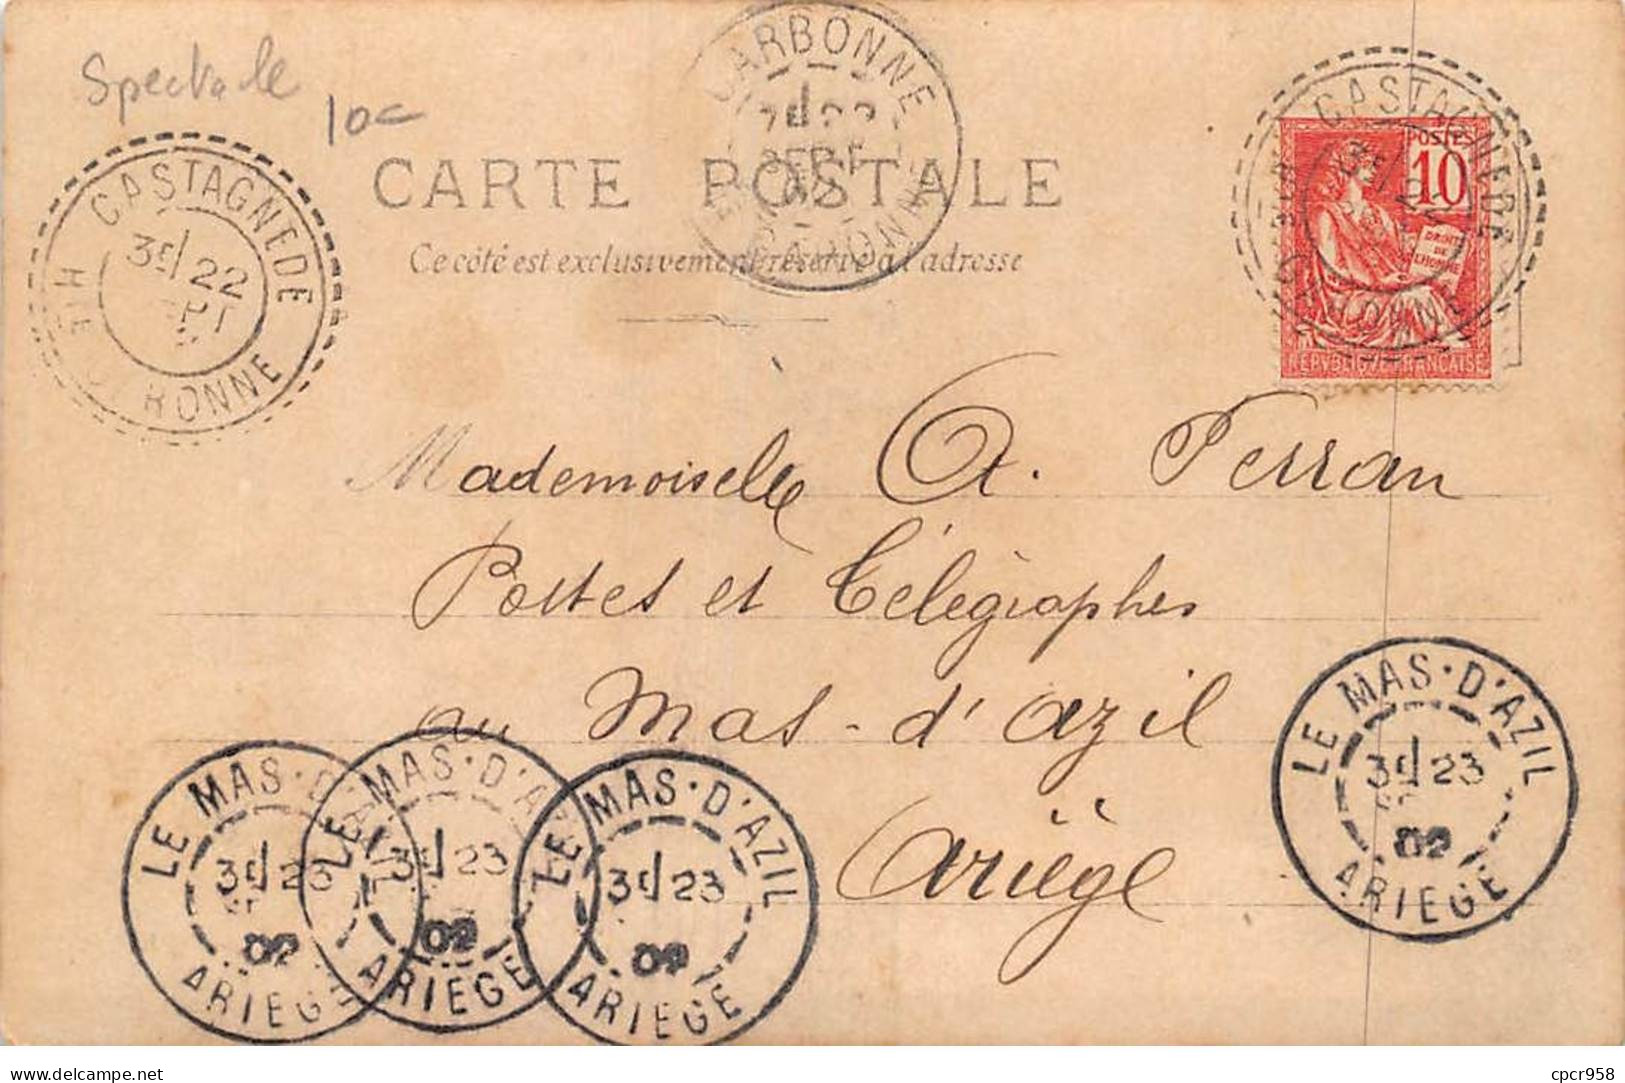 Spectacle
10c
CASTAGNEDE
3E 22
SEPT
HTE GARONNE
CARBONNE
7E 22
SEPT
02
HTE GARONNE
CASTAGNEDE
3E 22
HTE GARONNE
POSTES
10
DROITS DE L'HOMME
REPVBLIQVE FRANÇAISE
CARTE POSTALE
Ce côté est exclusivement réservé à l'adresse
Mademoiselle A. Ferran
Postes et Télégraphes
au Mas-d'azil
Ariège
LE MAS·D'AZIL
3E 23
02
ARIEGE
LE MAS·D'AZIL
3E 23
02
ARIEGE
LE MAS·D'AZIL
3E 23
02
ARIEGE
LE MAS·D'AZIL
3E 23
02
ARIEGE
delcampe.net
cpcr958